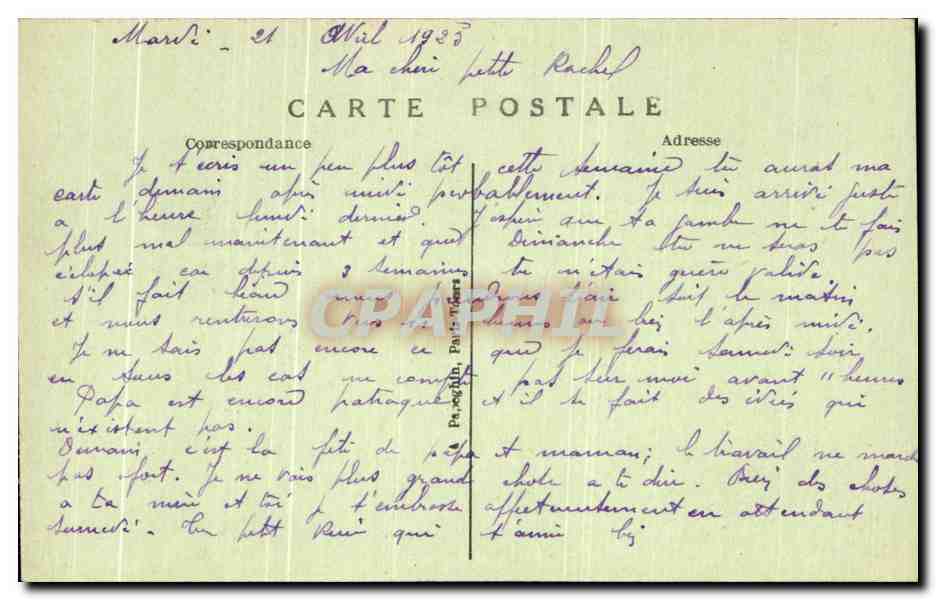 Mardi - 21 Avril 1925
Ma cheri petite Rachel
CARTE POSTALE
Correspondance
Adresse
Je t'ecris un peu plus tôt cette semaine tu aurat ma
carte demain après midi probablement. Je suis arrivé juste
a l'heure lundi dernier. J'espère que ta jambe ne te fais
plus mal maintenant et que Dimanche tu ne seras pas
éclopée car depuis 3 semaines tu n'étais guère valide
S'il fait beau nous prendrons l'air soit le matin
et nous rentrerons vers heures ou bien l'après midi.
Je ne sais pas encore ce que je ferais samedi soir
en tous les cas ne compte pas sur moi avant 11 heures
Papa est encore patraque et il se fait des idées qui
n'existent pas.
Demain c'est la fête de papa et maman; le travail ne marche
pas fort. Je ne vois plus grand chose a te dire. Bien des choses
a ta mère et toi je t'embrasse affectueusement en attendant
samedi - Ton petit René qui t'aime bien
Papeghin, Paris-Tours
CPAPHIL